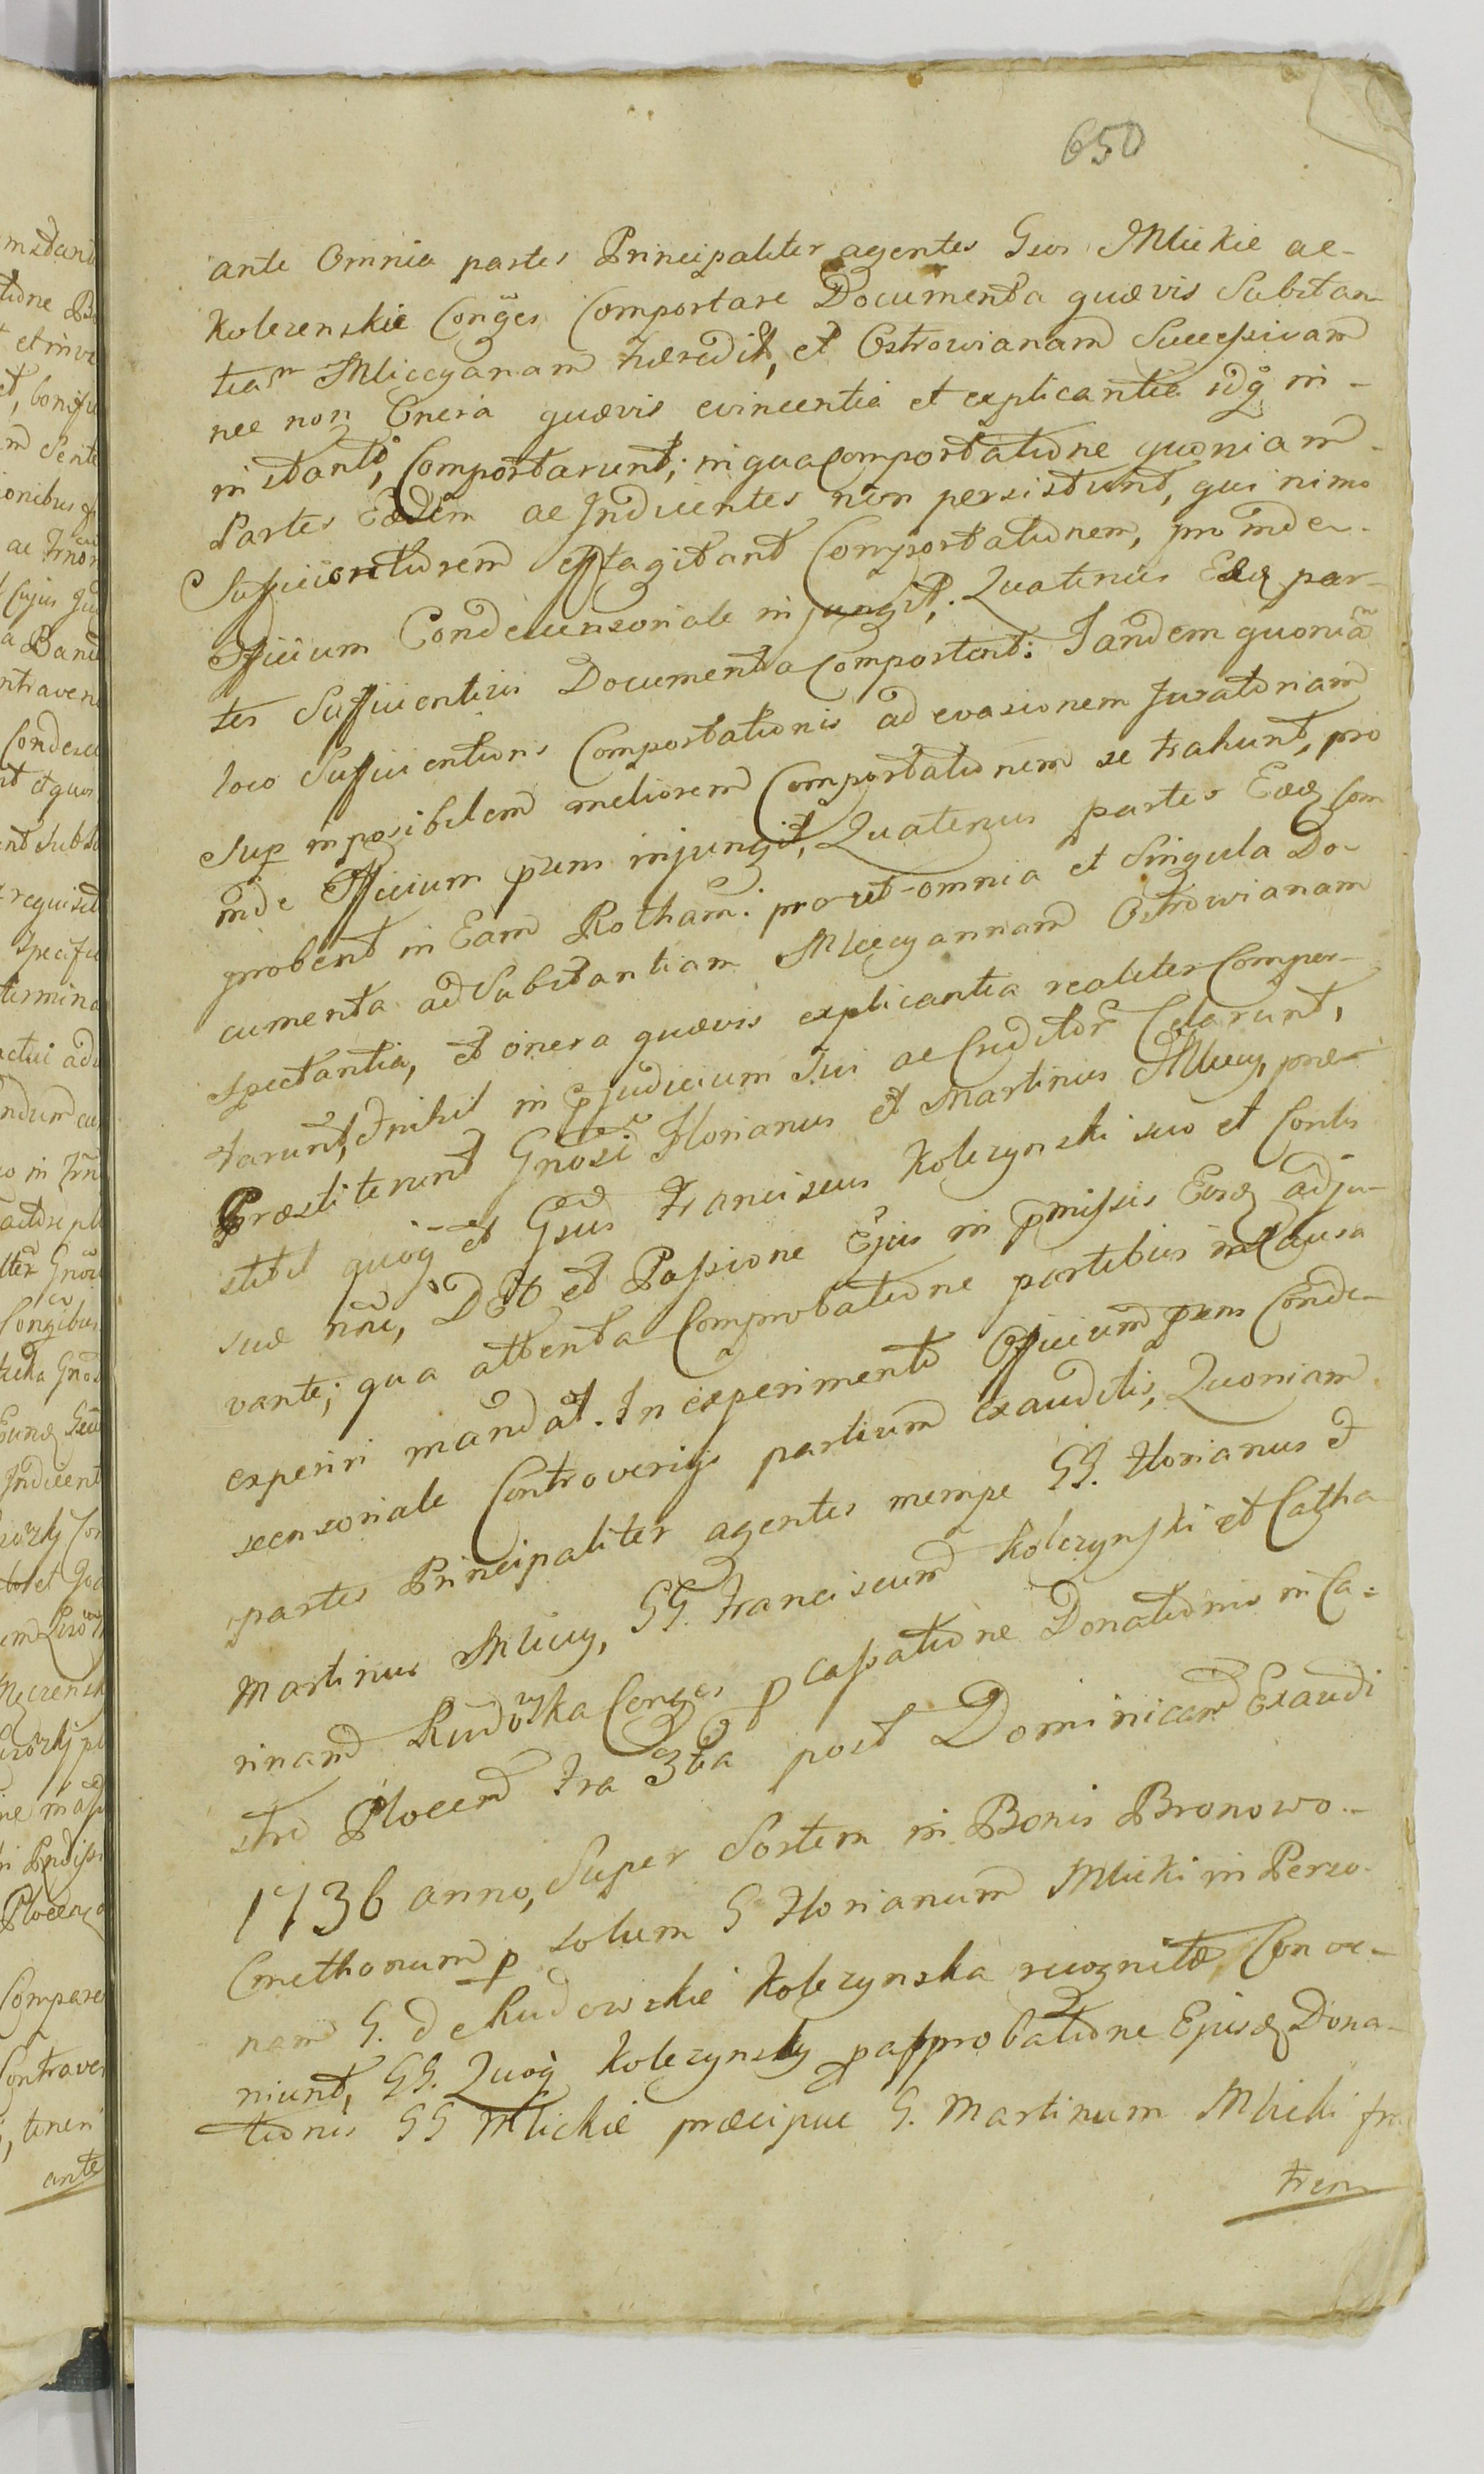 650
ante Omnia partes Principaliter agentes Gsos Mlickie ac-
Kolczenskie Conges Comportare Documenta quævis Substan-
tiam Mliccyanam hæredit, et Ostrowianam Successivam
nec non Onera quævis evincentia et explicantia idq in-
instanti, Comportarunt; in qua Comportatione quoniam
Partes Eædem ac Inducentes non persistunt, qui nimo
Sufficientiorem efflagitant Comportationem, pro inde
Officium Condescensoriale injungit; Quatenus Eædem par-
tes Sufficientius Documenta Comportent: Tandem quoniã
loco Sufficientioris Comportationis ad evasionem Juratoriam
Sup imposibilem meliorem Comportationem se trahunt, pro
inde Officium pñns injungit, Quatenus partes Eædem Com
probent in Eam Rotham: prout omnia et Singula Do-
cumenta ad Substantiam Mliccyannam Ostrowianam
spectantia, et onera quævis explicantia realiter Compor-
tarunt, et nihil in pjudicium Sui ac Creditor Celarunt,
Præstiterunt Gnosi Florianus et Martinus Mliccy, præ-
stitit quoq et Gsus Franciscus Kolczynski suo et Contis
suæ nñe, Dto et Passione Ejus in pmissis Eosdem adju-
vante; qua attenta Comprobatione partibus in Causa
experiri mandat. In experimento Officium pñns Conde-
scensoriale Controversijs partium exauditis, Quoniam
partes Principaliter agentes nempe GG. Florianus et
Martinus Mliccy, GG. Franciscum Kolczynski et Catha
rinam Rudowska Conges p cassatione Donationis in Ca=
stro Plocen Fra 3tia post Dominicam Exaudi
1736 anno, Super Sortem in Bonis Bronowo-
Cmethonum p solum G Florianum Mlicki in Perso-
nam G. de Rudowskie Kolczynska recognitæ, Con ve-
niunt, GG. Quoq Kolczynscy p approbatione Ejusdem Dona-
tionis GG Mlickie præcipue G. Martinum Mlicki fra
trem